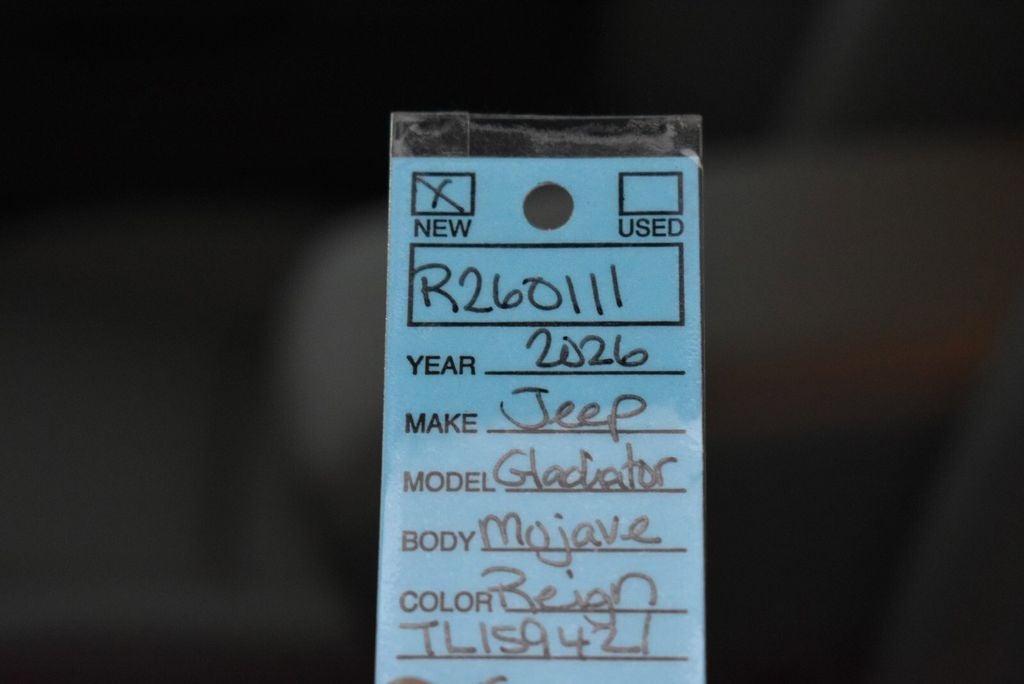 X
NEW USED
R260111
YEAR 2026
MAKE Jeep
MODEL Gladiator
BODY Mojave
COLOR Reign
TL159421